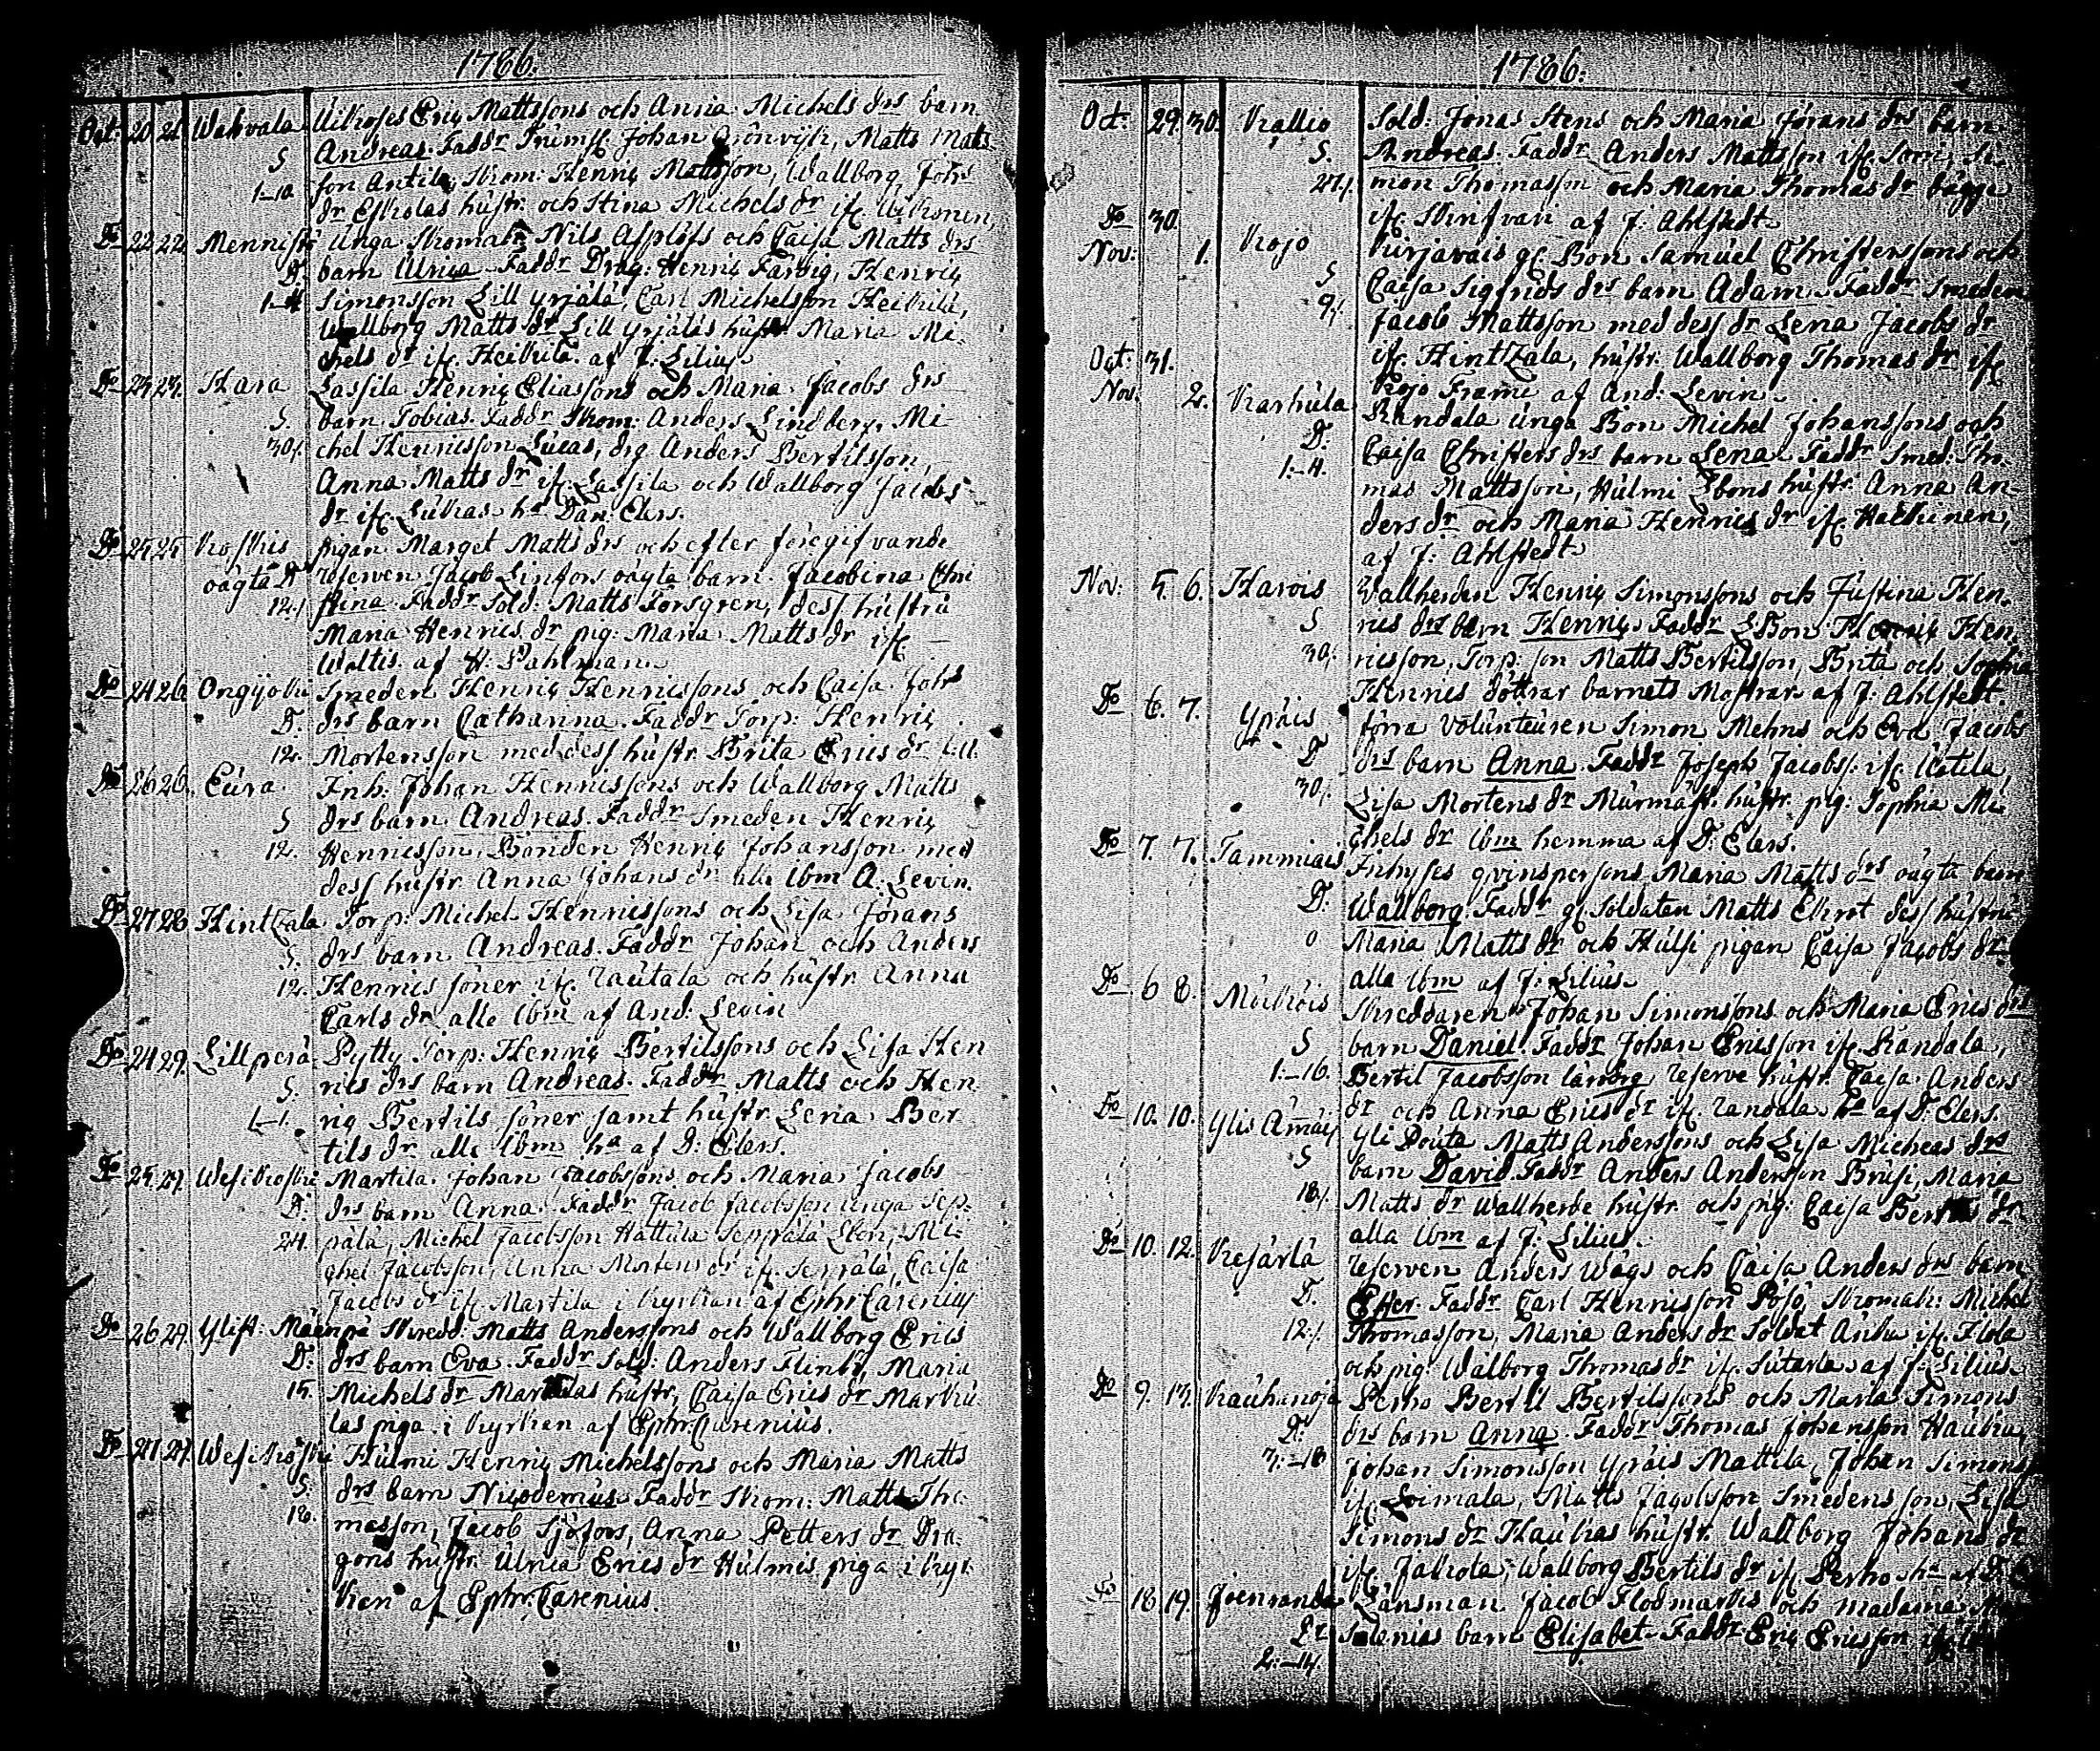 1786.
Oct: 20 21. Wahvala Uikoses Eriç Mattssons och Anna Michels drs barn
S Andreas. Faddr Trumsl. Johan Grönvijk, Matts Matts
1-10 son Antila, Skom: Henriç Mattsson, Wallborg Johs
dr Eskolas hustr: och Stina Michels dr ifr.
Do 22 22. Mennistö Unga Skomak: Nils Asplöfs och Caisa Matts drs
D. barn Ulrica. Faddr Drag: Henriç Farvig, Henriç
1-4 Simonsson Lill yrjälä, Carl Michelsson Heikilä,
Wallborg Matts dr Lill yrjäläs hustr Maria Mi-
chels dr ifr. Heikilä. af J. Lilius
Do 23 23. Hara Lassila Henriç Eliassons och Maria Jacobs drs
S. barn Tobias. Faddr Skom: Anders Lindberg, Mi
30/. chel Henricsson Lucas, drg Anders Bertilsson,
Anna Matts dr ifr. Lassila och Wallborg Jacobs
dr ifr. Lukas ha Dan: Elers.
Do 25 25 Koskis pigan Marget Matts drs och efter föregifvande
oägta D Reserven Jacob Linfors oägta barn. Jacobina Chri
12./. stina. Faddr Sold: Matts Forsgren, dess hustru
Maria Henrics dr pig: Maria Matts dr ifr.
Waltis. af H: Pahlman.
Do 24 26. Ongijoki Smeden Henriç Henricssons och Caisa Johs
D. drs barn Catharina. Faddr Torp: Henriç
12. Mortensson med dess hustr. Brita Erics dr
Do 26 26. Eura. Inh: Johan Henricssons och Wallborg Matts
S drs barn Andreas. Faddr Smeden Henriç
12. Henricsson, Bonden Henriç Johansson med
dess hustr. Anna Johans dr alla ibm A. Levin.
Do 27 28 Hintzala Torp: Michel Henricssons och Lisa Jörans
S. drs barn Andreas. Faddr Johan och Anders
12. Henrics söner ifr. Rautala och hustr Anna
Carls dr alle ibm af And: Levin
Do 24 29. Lillperä Pytty Torp: Henriç Bertilssons och Lisa Hen
S. rics drs barn Andreas. Faddr Matts och Hen
1.-1. riç Bertils söner samt hustr Lena Ber
tils dr alle ibm ha af D: Elers.
Do 25. 29. Wesikoski Martila Johan Jacobssons och Maria Jacobs
D: drs barn Anna. Faddr Jacob Jacobsson unga Sep-
24. pälä, Michel Jacobsson Hattula Seppälä Sbon, Mi-
chel Jacobsson, Anna Mortens dr ifr. Seppälä, Caisa
Jacobs dr ifr. Martila i kyrkan af Ephr. Carenius
Do 26. 29. Ylist: Mäenpä Skredd: Matts Anderssons och Wallborg Erics
D: drs barn Eva. Faddr Sold: Anders Flink, Maria
15. Michels dr hustr, Caisa Erics dr Marku
las piga. i kyrkan af Ephr. Carenius.
Do 27. 29. Wesikoski Hulmi Henriç Michelssons och Maria Matts
S. drs barn Nicodemus. Faddr Skom: Matts Tho-
18. masson, Jacob Sjöfors, Anna Petters dr Dra-
gons hustr. Ulrica Erics dr Hulmis piga i kyr-
kan af Ephr. Carenius.
1786.
Oct: 29. 30. Kallio Sold: Jonas Stens och Maria Jörans drs barn
S. Andreas. Faddr Anders Mattsson ifr. Somi, Si-
27./. mon Thomasson och Maria Thomas dr bägge
Do 30. ifr. Skinfvari af J: Ahlstedt
Nov: 1. Kojo Kurjavais gl. Bon Samuel Christerssons och
S Caisa Sigfrids drs barn Adam. Faddr Smeden
9/. Jacob Mattsson med dess dr Lena Jacobs dr
Oct: 31. ifr. Hintzala, hustr. Wallborg Thomas dr ifr
Nov. 2. Karhula Kojo Frami af And: Levin.
Randala unga Bon Michel Johanssons och
D: Caisa Christers drs barn Lena. Faddr Smed: Tho-
1.-4. mas Mattsson, Hulmi Sbons hustr. Anna An-
ders dr och Maria Henrics dr ifr Hakkinen,
af J: Ahlstedt
Nov: 5. 6. Harois Wallherden Henriç Simonssons och Justina Hen-
S rics drs barn Henriç. Faddr SBon Henriç Hen
30/. ricsson, Torp: son Matts Bertilsson, Brita och Sophia
Henrics döttrar barnets Mostrar. af J: Ahlstedt.
Do 6. 7. Ypäis förra Volunteuren Simon Mehns och Eva Jacobs
D drs barn Anna. Faddr Joseph Jacobss: ifr. Uotila,
30/. Lisa Mortens dr Murmäst: hustr. pig: Sophia Mi
chels dr ibm hemma af D: Elers.
Do 7. 7. Tammiais Inhyses qvinspersons Maria Matts drs oägta barn
D: Wallborg. Faddr gl. Soldaten Matts Ekrot dess hustru
0 Maria Matts dr och Hulsi pigan Caisa Jacobs dr
alla ibm af J: Lilius.
Do 6 8. Moikois Skreddaren Johan Simonssons och Maria Erics drs
S barn Daniel. Faddr Johan Ericsson ifr Randala,
1.-16. Bertil Jacobsson Reserve hustr. Caisa Anders
dr och Anna Erics dr ifr. Randala ha af D: Elers.
Do 10. 10. Ylis Yli Pouta Matts Anderssons och Lisa Micheas drs
S barn David. Faddr Anders Andersson Brusi, Maria
18/. Matts dr Wallherde hustr. och pig: Caisa dr
alla ibm af J: Lilius.
Do 10. 12. Kesärlä Reserven Anders Wågs och Caisa Anders drs barn
D. Ester. Faddr Carl Henricsson Pösö, Skomak: Michel
12./. Thomasson, Maria Anders dr Soldat ifr. Flola
och pig: Walborg Thomas dr ifr. Sutarla af J: Lilius
Do 9. 13. Kauhanoja Perho Bertil Bertilssons och Maria Simons
D: drs barn Anna. Faddr Thomas Johansson Haukia,
3.-18 Johan Simonsson Ypäis Mattila, Johan Simons
ifr Loimala, Matts Jacobsson Smedens son, Lisa
Simons dr Haukias hustr. Wallborg Johans dr
ifr. Jakola, Wallborg Bertils dr ifr Perho ha af D.
Do 18 19. Joenranda Länsman Jacob Flodmarks och madame
barn Elisabet. Faddr Eriç Ericsson ifr
2.-14.